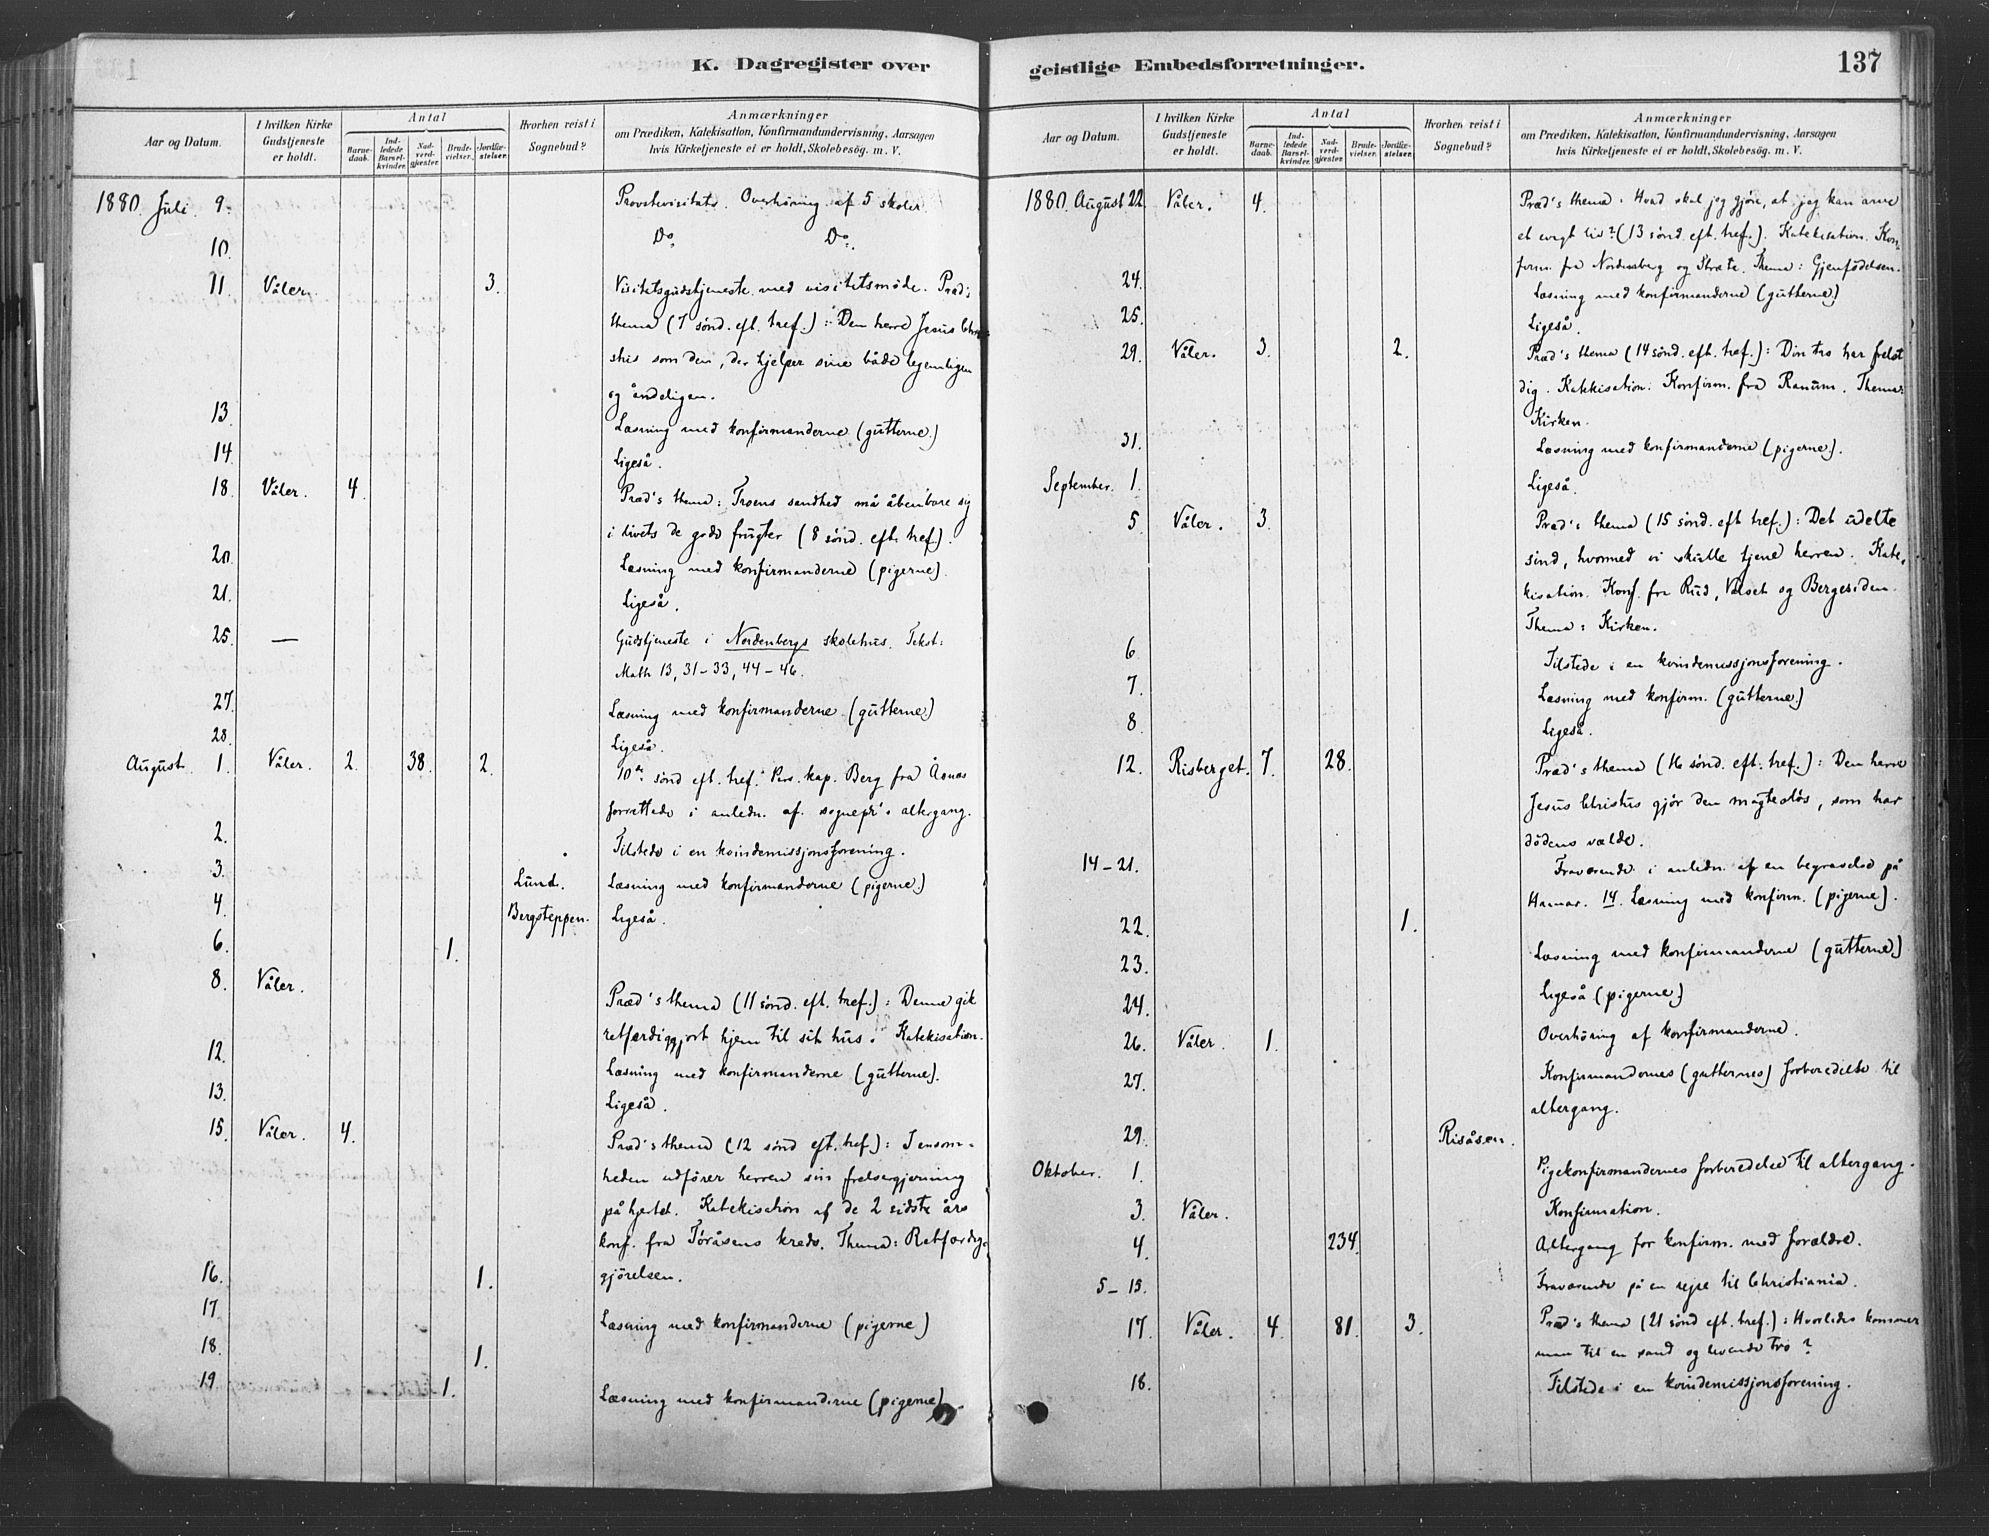 K. Dagregister over
geistlige Embedsforretninger.
137
Aar og Datum.
I hvilken Kirke Gudstjeneste er holdt.
Antal
Barne-daab.
Ind-ledede Barsel-kvinder.
Nad-verd-gjester.
Brude-vielser.
Jordfæ-stelser.
Hvorhen reist i Sognebud?
Anmærkninger
om Prædiken, Katekisation, Konfirmandundervisning, Aarsagen
hvis Kirketjeneste ei er holdt, Skolebesög. m. V.
1880 Juli 9. Provstevisitats. Overhöring af 5 skoler.
10. Do Do.
11 Våler. 3. Visitatsgudstjeneste med visitatsmöde. Præd's
thema (7 sönd. eft. tref.): Den herre Jesus Chri-
stus som den, der hjelper sine både legemligen
og åndeligen.
13. Læsning med konfirmanderne (gutterne.)
14. Ligeså.
18. Våler. 4. Præd's thema: Troens sandhed må åbenbare sig
i livets de gode frugter (8 sönd. eft. tref.).
20. Læsning med konfirmanderne (pigerne).
21. Ligeså.
25. — Gudstjeneste i Nordenbergs skolehus. Tekst:
Math 13, 31-33, 44-46.
27. Læsning med konfirmanderne (gutterne.)
28. Ligeså.
August. 1. Våler. 2. 38. 2. 10de sönd eft. tref. Pers. kap. Berg fra Åsnes
forrettede i anledn. af sognepr's altergang.
2. Tilstede i en kvindemissjonsforening.
3. Lund. Læsning med konfirmanderne (pigerne.)
4. Bergsteppen. Ligeså.
6. 1.
8. Våler. Præd's thema (11 sönd. eft. tref.): Denne gik
retfærdiggjort hjem til sit hus. Katekisation.
12. Læsning med konfirmanderne (gutterne).
13. Ligeså.
15. Våler. 4. Præd's thema (12 sönd eft. tref.): I ensom-
heden udfører herren sin frelsergjerning
på hjertet. Katekisation af de 2 sidste års
konf. fra Toråsens kreds. Thema: Retfærdig-
gjörelsen.
16. 1.
17. Læsning med konfirmanderne (pigerne)
18. 1.
19 1. Læsning med konfirmanderne (pigerne).
Aar og Datum.
I hvilken Kirke Gudstjeneste er holdt.
Antal
Barne-daab.
Ind-ledede Barsel-kvinder.
Nad-verd-gjester.
Brude-vielser.
Jordfæ-stelser.
Hvorhen reist i Sognebud?
Anmærkninger
om Prædiken, Katekisation, Konfirmandundervisning, Aarsag
hvis Kirketjeneste ei er holdt, Skolebesög. m. V.
1880. August 22. Våler. 4. Præd's thema. Hvad skal jeg gjöre, at jeg kan arve
et evigt liv? (13 sönd. eft. tref.). Katekisation. Kon-
firm. fra Nordenberg og Stræte. Thema: Gjenfödelsen.
24. Læsning med konfirmanderne (gutterne.)
25. Ligeså.
29. Våler. 3. 2. Præd's thema (14 sönd. eft. tref.): Din tro har frelst
dig. Katekisation. Konfirm. fra Ranum. Thema:
Kirken.
31. Læsning med konfirmanderne (pigerne).
September. 1. Ligeså.
5. Våler. 3. Præd's thema (15 sönd. eft tref.): Det udelte
sind, hvormed vi skulle tjene herren. Kate-
kisation. Konf. fra Rud, Valset og Bergesiden.
Thema: Kirken.
6 Tilstede i en kvindemissjonsforening.
7. Læsning med konfirm. (gutterne.)
8. Ligeså.
12. Risberget. 7. 28. Præd's thema (16 sönd. eft. tref.): Den herre
Jesus Christus gjör den magteslös, som har
dödens vælde.
14-21. Fraværende i anledn. af en begravelse på
Hamar. 14. Læsning med konfirm. (pigerne).
22. 1. Læsning med konfirmanderne (gutterne.)
23. Ligeså (pigerne.)
24. Overhöring af konfirmanderne.
26. Våler. 1.
27. Konfirmandernes (gutternes) forberedelse til
altergang.
29. Risåsen.
Oktober. 1. Pigekonfirmandernes forberedelse til altergang.
3. Våler. Konfirmation.
4. 234. Altergang for konfirm. med forældre.
5-13. Fraværende på en rejse til Christiania.
17. Våler. 4. 81. 3. Præd's thema (21 sönd eft. tref.): Hvorledes kommer
man til en sand og levende tro?
18. Tilstede i en kvindemissjonsforening.